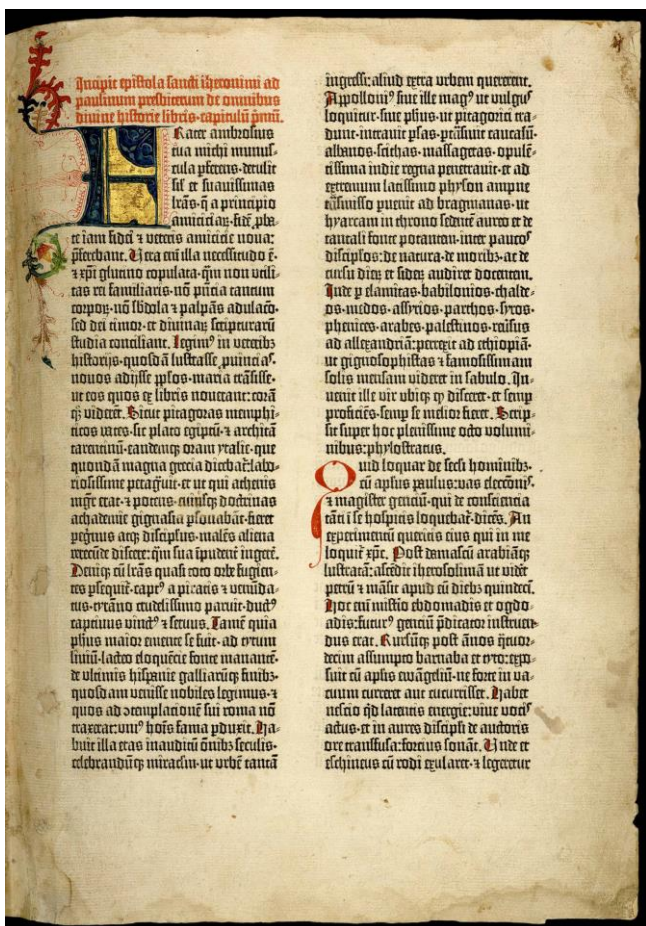 Incipit epistola sancti iheronimi ad
paulinum presbiterum de omnibus
divine historie libris· capitulū p̄mū.
Frater ambrosius
tua michi munus⸗
cula ꝑferens· detulit
sił et suavissimas
lrās· q̄ a principio
amiciciaꝝ· fidē ꝓba⸗
te iam fidei ⁊ veteris amicicie nova:
p̄ferebant. Vera enī illa necessitudo ē·
⁊ xp̄i glutino copulata· q̄m non utili⸗
tas rei familiaris· nō p̄ncia tantum
corpoꝝ· nō sbdola ⁊ palpās adulacō·
sed dei timor· et divinaꝝ scripturarū
studia conciliant. Legimꝰ in veteribꝫ
historijs· quosdā lustrasse ꝓuincias·
novos adijsse pplos· maria trāsisse·
ut eos quos ex libris noverant: corā
qꝫ viderēt. Sicut pitagoras memphi⸗
ticos vates· sic plato egiptū· ⁊ architā
tarentinū· eandemqꝫ oram ytalie· que
quondā magna grecia dicebat̄: labo⸗
riosissime peragrauit· et ut qui athenis
mgr̄ erat· ⁊ potens· cuiusqꝫ doctrinas
achademie gignasia ꝑsonabāt· fieret
peginus atqꝫ discipulus· malēs aliena
verecūde discere: q̄m sua īpudent̄ ingere̾.
Deniqꝫ cū lrās quasi toto orbe fugien⸗
tes ꝑsequit̄· captꝰ a piratis ⁊ venūda⸗
tus· tyrāno crudelissimo paruit· ductꝰ
captiuus vinctꝰ ⁊ seruus. Tamē quia
phūs maior emente se fuit· ad tytum
liuiū· lacteo eloquēcie fonte manantē·
de ultimis hispanie galliarūqꝫ finibꝫ·
quosdam venisse nobiles legimus· ⁊
quos ad ɔtemplacionē sui roma nō
traxerat: uniꝰ hoīs fama ꝑduxit. Ha⸗
buit illa etas inauditū ōnibꝫ seculis·
celebrandūqꝫ miraclm· ut urbē tantā
ingressi: aliud extra urbem quererent.
Appolloniꝰ sive ille magꝰ ut vulgus
loquitur· sive phūs· ut pitagorici tra⸗
dunt· intrauit ꝑsas· ptrāsiuit caucasū·
albanos· scithas· massagetas· opulē⸗
tissima indie regna penetrauit· et ad
extremum latissimo physon ampne
trāsmisso ꝑuenit ad bragmanas· ut
hyarcam in throno sedētē aureo et de
tantali fonte potantem· inter paucos
discipłos: de natura· de moribꝫ· ac de
cursu dieꝝ et sideꝝ audiret docentem.
Inde ꝑ elamitas· babilonios· chalde⸗
os· medos· assyrios· parthos· syros·
phenices· arabes· palestinos· reūsus
ad allexandriā: perrexit ad ethiopiā·
ut gignosophistas ⁊ famosissimam
solis mensam videret in sabulo. In⸗
uenit ille vir ubiqꝫ qđ disceret· et semꝑ
proficiēs· semꝑ se melior fieret. Scrip⸗
sit super hoc plenissime octo volumi⸗
nibus: phylostratus.
Quid loquar de secli hominibꝫ·
cū aplūs paulus: vas electōnis·
⁊ magister genciū· qui de consciencia
tāti ī se hospitis loquebat̄· dicēs. An
experimentū queritis eius qui in me
loquit̄ xp̄c. Post damascū arabiāqꝫ
lustratā: ascēdit iherosolimā ut vidēt
petrū ⁊ māsit apud eū diebꝫ quindecī.
Hoc enī misterio ebdomadis et ogdo⸗
adis: futurꝰ genciū p̄dicator instruen⸗
dus erat. Rursūqꝫ post ānos q̄tuor⸗
decim assumpto barnaba et tyto: expo⸗
suit cū aplīs ewāgeliū· ne forte in va⸗
cuum curreret aut cucurrisset. Habet
nescio qđ latentis energie: viue vocis
actus· et in aures discipli de auctoris
ore transfusa: forcius sonāt. Unde et
eschineus cū rodi exularet· ⁊ legeretur